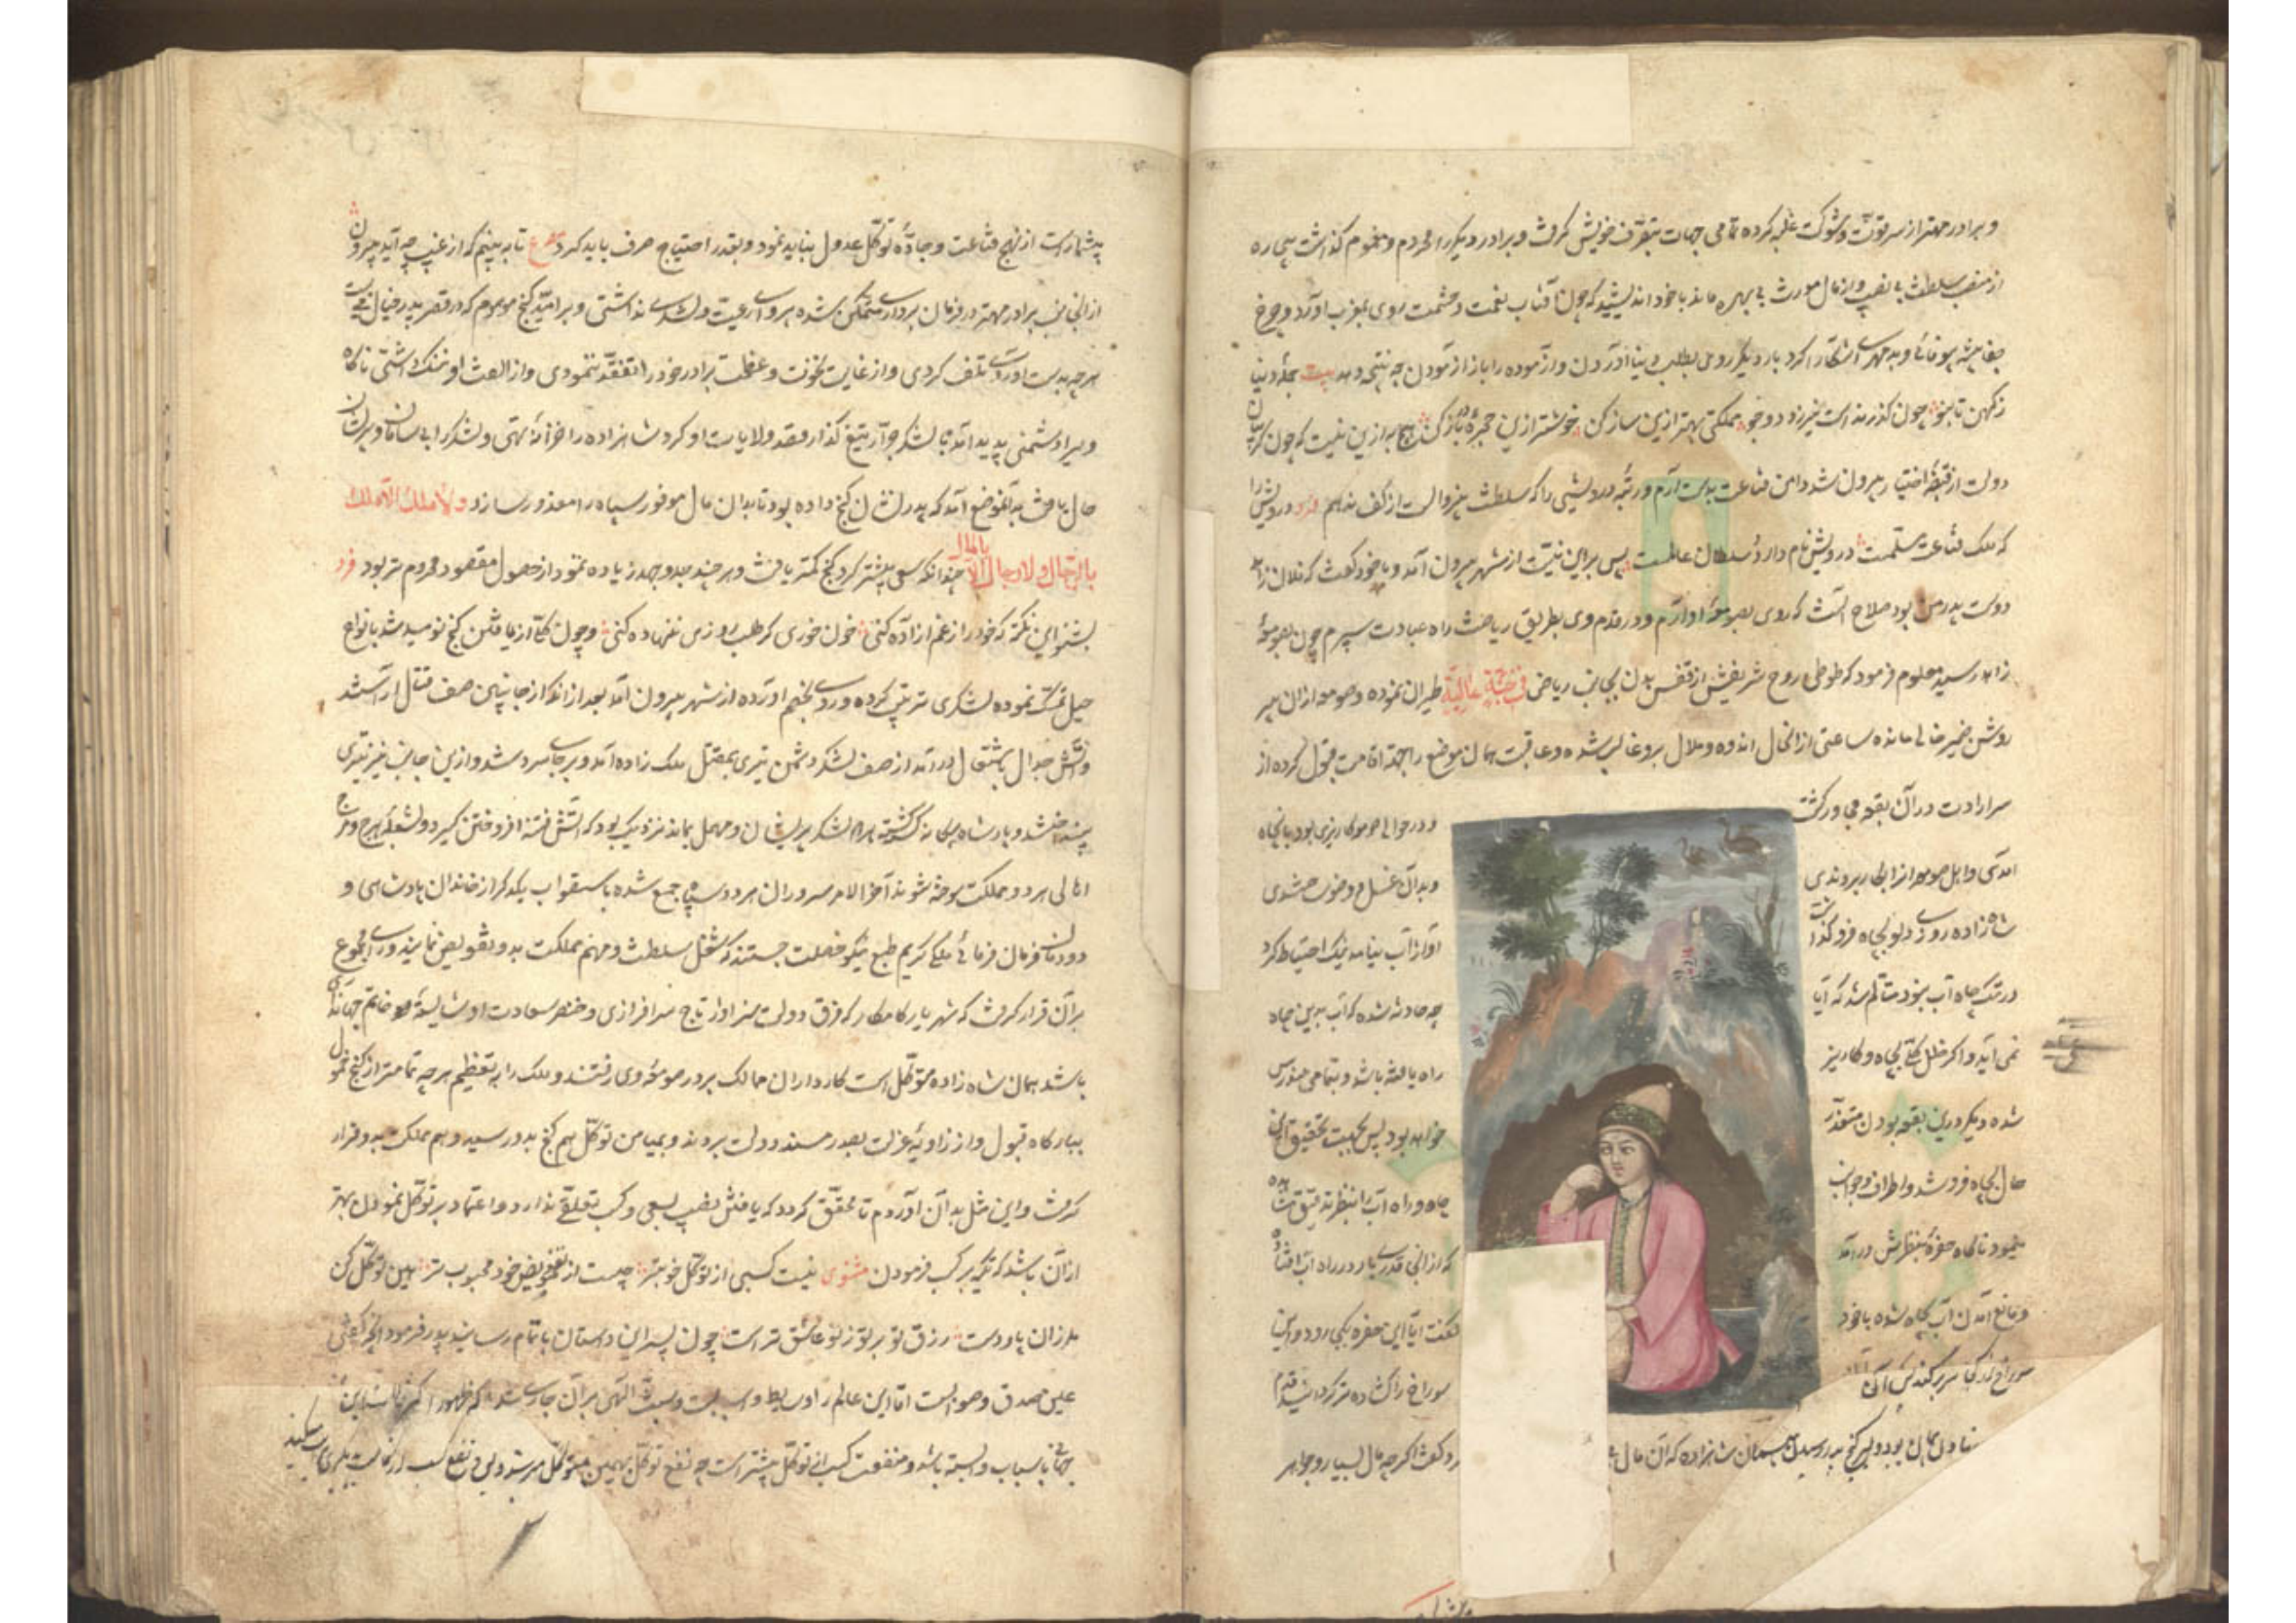 و برادر مهتر از سر قوّت و شوکت غلبه کرده تمامی جهات بتصرّف خویش گرفت و برادر دیگر را محروم و مغموم گذاشت بیچاره
از منصب سلطنت بی نصیب و از مال مورث بی بهره ماند با خود اندیشید که چون آفتاب نعمت و حشمت روی بمغرب آورد و چرخ
جفا پیشه بیوفائی و بدمهری آشکارا کرد بار دیگر روی بطلب دنیا آوردن و آزموده را باز آزمودن چه نتیجه دهد بیت جمله دنیا
ز کهن تا بنو چون گذرنده است نیرزد دو جو مملکتی بهتر ازین ساز کن خوشتر ازین حجره در باز کن هیچ به ازین نیست که چون گریبان
دولت از قبضهٔ اختیار بیرون شد دامن قناعت بدست آرم و رتبهٔ درویشی را که سلطنت بیزوالست از کف ندهم فرد درویش را
که ملک قناعت مسلّمست درویش نام دارد و سلطان عالمست پس برین نیّت از شهر بیرون آمد و با خود گفت که فلان زاهد
دوست پدر من بود صلاح آنست که روی بصومعهٔ او آرم و در قدم وی بطریق ریاضت راه عبادت سپرم چون بصومعهٔ
زاهد رسید معلوم فرمود که طوطی روح شریفش از قفس بدن بجانب ریاض فی جنّة عالیة طیران نموده و صومعه از ان پیر
روشن ضمیر خالی مانده ساعتی از انحال اندوه و ملال برو غالب شده و عاقبت همان موضع را جهت اقامت قبول کرده از
سر ارادت در آن بقعه مجاور گشت و در حوالی صومعه کاریزی بود بانجاه
آمدی و اهل صومعه از ان بکار بردندی و بدان غسل و وضو ساختندی
شاهزاده روزی دلو بچاه فرو گذاشت آواز آب نیامد نیک احتیاط کرد
در تک چاه آب نبود متأمّل شد که آیا چه حادثه شده که آب بدین چاه
نمی آید و اگر خلل کلّی بچاه و کاریز راه یافته باشد و بتمامی مندرس
شده دیگر درین بقعه بودن متعذّر خواهد بود پس بجهت تحقیق این
حال بچاه فرو شد و اطراف و جوانب چاه و راه آب را بنظر تدقیق مشاهده
مینمود ناگاه حفرهٔ بنظرش در آمد که از انجا قدری بار در راه آب افتاده
و مانع آمدن آب بچاه شده با خود گفت آیا این حفره بکجا رود و این
سوراخ از کجا سر بر کند پس آن سوراخ را گشاده تر کرد
نهادن همان بود و بر سر گنج پدر رسیدن همان شاهزاده که آن مال گفت اگر چه مال بسیار و جواهر
بیشمارست از نهج قناعت و جادّهٔ توکّل عدول نباید نمود و بقدر احتیاج صرف باید کرد مصرع تا به بینم که از غیب چه آید بیرون
از انجانب برادر مهتر در فرمان برداری متمکّن شده پروای رعیت و لشکری نداشتی و بر امید گنج موهوم که در قصر پدر خیال می بست
هر چه بدست آوردی تلف کردی و از غایت نخوت و عظمت برادر خود را تفقّد ننمودی و از الفت او ننگ داشتی ناگاه
ویرا دشمنی پدید آمد با لشکر جرّار تیغ گذار و قصد ولایات او کرد شاهزاده را خزانهٔ تهی و لشکر را بی سامان و پریشان
حال یافت بدانموضع آمد که پدر نشان گنج داده بود تا بدان مال موفور سپاه را معذور سازد و لا ملک الّا
بالرّجال و لا رجال الّا بالمال چندانکه سعی بیشتر کرد گنج کمتر یافت و هر چند جد و جهد زیاده نمود از حصول مقصود محروم تر بود فرد
بشنو این نکته که خود را ز غم آزاده کنی خون خوری گر طلب روزی ننهاده کنی و چون کلّی از یافتن گنج نومید شد بانواع
حیل تمسّک نموده لشکری ترتیب کرده و روی بخصم آورده از شهر بیرون آمد بعد از انکه از جانبین صف قتال آراسته شد
و آتش جدال باشتعال در آمد از صف لشکر دشمن تیری بمقتل ملک زاده آمد و بر جای سرد شد و ازین جانب نیز تیری
بینداختند و پادشاه بیگانه کشته شد هر دو لشکر پریشان و مهمل بماند نزدیک بود که آتش فتنه افروختن گیرد و بشعلهٔ هرج و مرج
اهالی هر دو مملکت سوخته شوند آخر الامر سروران هر دو سپاه جمع شده باستصواب یکدیگر از خاندان پادشاهی و
دودمان فرمان فرمائی ملکی کریم طبع نیکو خصلت جستند که شغل سلطنت و مهمّ مملکت بدو تفویض نمایند رای مجموع
بر آن قرار گرفت که شهریار کامکار که فرق دولت سزاوار تاج سرافرازی و خنصر سعادت او شایستهٔ خاتم جهانداری
باشد همان شاه زاده متوکّل است کارداران ممالک بر در صومعهٔ وی رفتند و ملک را به تعظیم هر چه تمامتر از کنج خمول
ببارگاه قبول و از زاویهٔ عزلت بصدر مسند دولت بردند و بمیامن توکّل هم گنج پدر رسید و هم مملکت بدو قرار
گرفت و این مثل بدان آوردم تا محقّق گردد که یافتن نصیب بسعی و کسب تعلّقی ندارد و اعتماد بر توکّل نمودن بهتر
از آن باشد که تکیه بر کسب فرمودن مثنوی نیست کسبی از توکّل خوبتر چیست از تفویض خود محبوب تر هین توکّل کن
ملرزان پا و دست رزق تو بر تو ز تو عاشق تر است چون پسر این داستان باتمام رسانید پدر فرمود آنچه گفتی
عین صدق و صوابست امّا این عالم را وسایط و اسبابست و سنّت الهی بر آن جاری شده که ظهور اکثر حالات این
جهان باسباب وابسته باشد و منفعت کسب از توکّل بیشتر است چه نفع توکّل بهمین متوکّل میرسد و نفع کسب از کاسب بدیگری